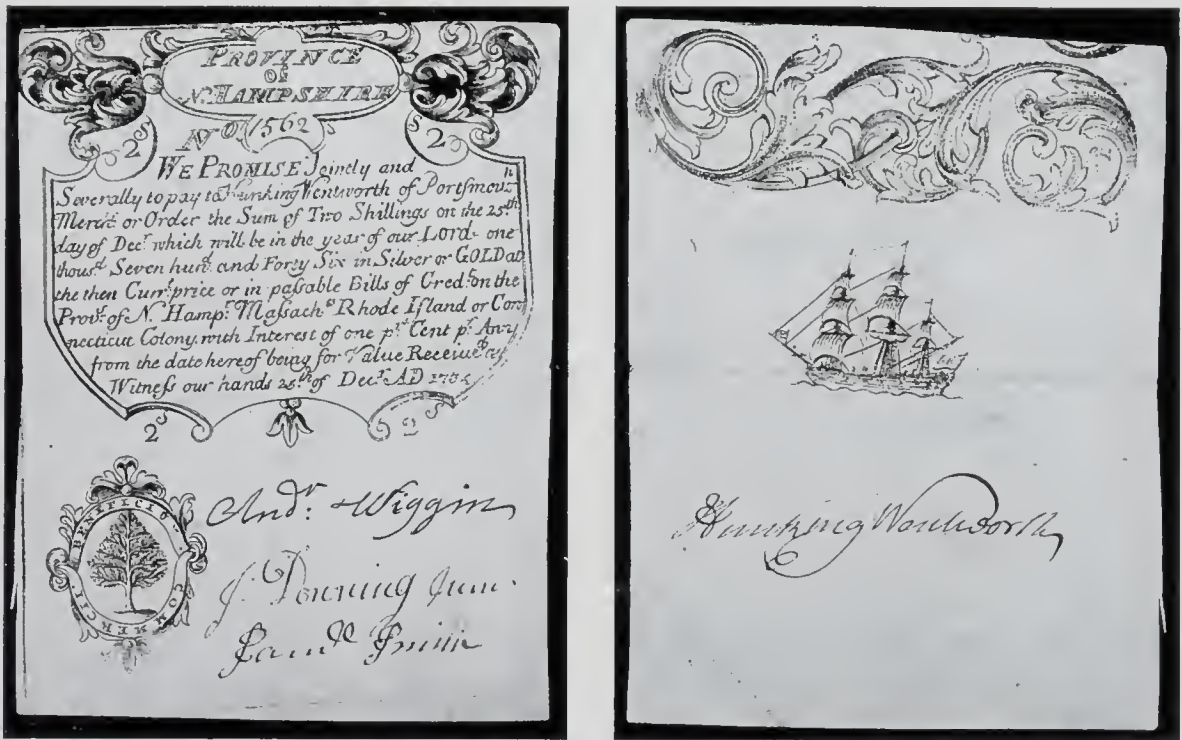 PROVINCE
OF
N. HAMPSHIRE
No 1562
2s 2s
WE PROMISE Jointly and
Severally to pay to Hunking Wentworth of Portsmouth
Mercht or Order the Sum of Two Shillings on the 25th
day of Decr which will be in the year of our LORD one
thousd Seven hund and Forty Six in Silver or GOLD at
the then Currt price or in paſsable Bills of Credt on the
Provce of N. Hampr Maſsachts Rhode Iſland or Con
necticut Colony with Interest of one pr Cent pr Anm
from the date hereof being for Value Receiued as
Witneſs our hands 25th of Decr AD
2s 2s
BENEFICIO COMMERCII
Andr Wiggin
J: Downing Junr
Samll Smith
Hunking Wentworth